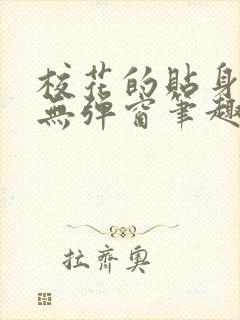 校花的貼身
無彈窗筆趣
拉齊奧